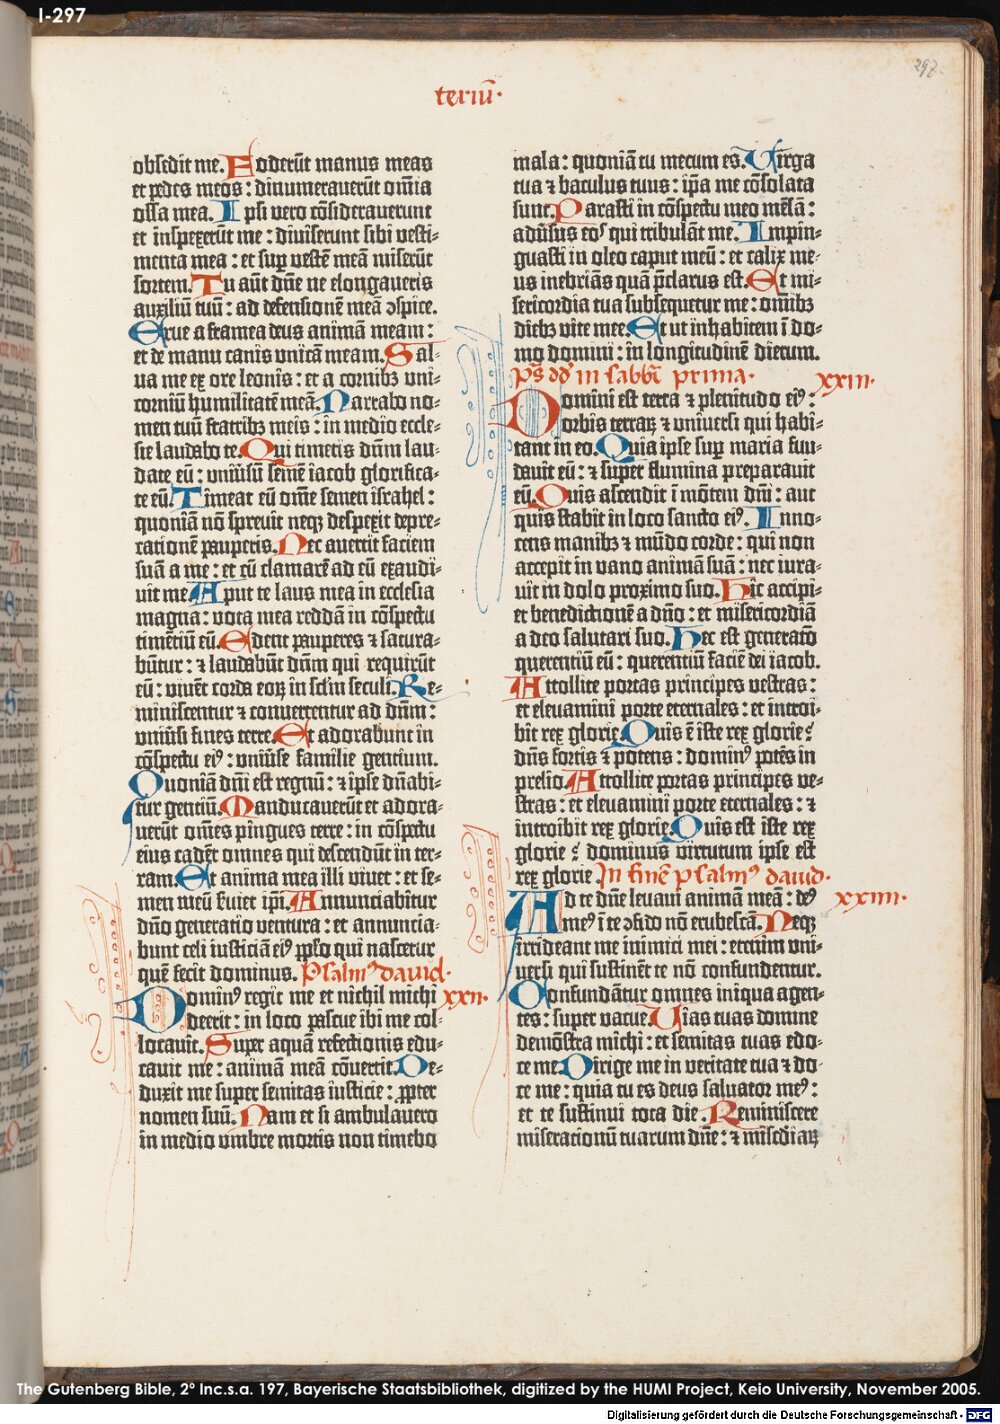 I-297
297.
teriū·
obsedit me. Foderūt manus meas
et pedes meos : dinumeraverūt om̄ia
ossa mea. Ipsi vero cōsideraverunt
et inspexerūt me : diviserunt sibi vesti-
menta mea : et sup̄ vestē meā miserūt
sortem. Tu aūt dn̄e ne elongaveris
auxiliū tuū : ad defensionē meā ꝯspice.
Erue a framea deus animā meam :
et de manu canis unicā meam. Sal-
va me ex ore leonis : et a cornibꝫ uni-
corniū humilitatē meā. Narrabo no-
men tuū fratribꝫ meis : in medio eccle-
sie laudabo te. Qui timetis dn̄m lau-
date eū : univ̄sū semē iacob glorifica-
te eū. Timeat eū om̄e semen israhel :
quoniā nō sprevit neqꝫ despexit depre-
cationē pauperis. Nec avertit faciem
suā a me : et cū clamarē ad eū exaudi-
vit me. Aput te laus mea in ecclesia
magna : vota mea reddā in cōspectu
timentiū eū. Edent pauperes ⁊ satura-
būtur : ⁊ laudabūt dn̄m qui requirūt
eū : vivēt corda eoꝝ in sclm̄ seculi. Re-
miniscentur ⁊ convertentur ad dn̄m :
univ̄si fines terre. Et adorabunt in
cōspectu eiꝰ : univ̄se familie gentium.
Quoniā dn̄i est regnū : ⁊ ipse dn̄abi-
tur gentiū. Manducaverūt et adora-
verūt om̄es pingues terre : in cōspectu
eius cadēt omnes qui descendūt in ter-
ram. Et anima mea illi vivet : et se-
men meū serviet ip̄i. Annunciabitur
dn̄o generatio ventura : et annuncia-
bunt celi iusticiā eiꝰ pplo qui nascetur
quē fecit dominus. Psalmꝰ david·
Dominꝰ regit me et nichil michi xxii·
deerit : in loco pascue ibi me col-
locavit. Super aquā refectionis edu-
cavit me : animā meā cōvertit. De-
duxit me super semitas iusticie : ꝓpter
nomen suū. Nam et si ambulavero
in medio umbre mortis non timebo
mala : quoniā tu mecum es. Virga
tua ⁊ baculus tuus : ip̄a me cōsolata
sunt. Parasti in cōspectu meo mēsā :
adv̄sus eos qui tribulāt me. Impin-
guasti in oleo caput meū : et calix me-
us inebriās quā p̄clarus est. Et mi-
sericordia tua subsequetur me : om̄ibꝫ
diebꝫ vite mee. Et ut inhabitem ī do-
mo domini : in longitudinē dierum.
Ps̄ dd̄ in sabbī prima· xxiii·
Domini est terra ⁊ plenitudo eiꝰ :
orbis terraꝝ ⁊ universi qui habi-
tant in eo. Quia ipse sup̄ maria fun-
davit eū : ⁊ super flumina preparavit
eū. Quis ascendit ī mōtem dn̄i : aut
quis stabit in loco sancto eiꝰ. Inno-
cens manibꝫ ⁊ mūdo corde : qui non
accepit in vano animā suā : nec iura-
vit in dolo proximo suo. Hic accipi-
et benedictionē a dn̄o : et misericordiā
a deo salutari suo. Hec est generato
querentiū eū : querentiū faciē dei iacob.
Attollite portas principes vestras :
et elevamini porte eternales : et introi-
bit rex glorie. Quis ē iste rex glorie?
dn̄s fortis ⁊ potens : dominꝰ potēs in
prelio. Attollite portas principes ve-
stras : et elevamini porte eternales : ⁊
introibit rex glorie. Quis est iste rex
glorie? dominus virtutum ipse est
rex glorie In finē psalmꝰ david·
Ad te dn̄e levavi animā meā : deꝰ xxiiii·
meꝰ ī te ꝯfido nō erubescā. Neqꝫ
irrideant me inimici mei : etenim uni-
versi qui sustinēt te nō confundentur.
Confundātur omnes iniqua agen-
tes : super vacue. Vias tuas domine
demōstra michi : et semitas tuas edo-
ce me. Dirige me in veritate tua ⁊ do-
ce me : quia tu es deus salvator meꝰ :
et te sustinui tota die. Reminiscere
miserationū tuarum dn̄e : ⁊ mis̄cdiaꝝ
The Gutenberg Bible, 2° Inc.s.a. 197, Bayerische Staatsbibliothek, digitized by the HUMI Project, Keio University, November 2005.
Digitalisierung gefördert durch die Deutsche Forschungsgemeinschaft · DFG